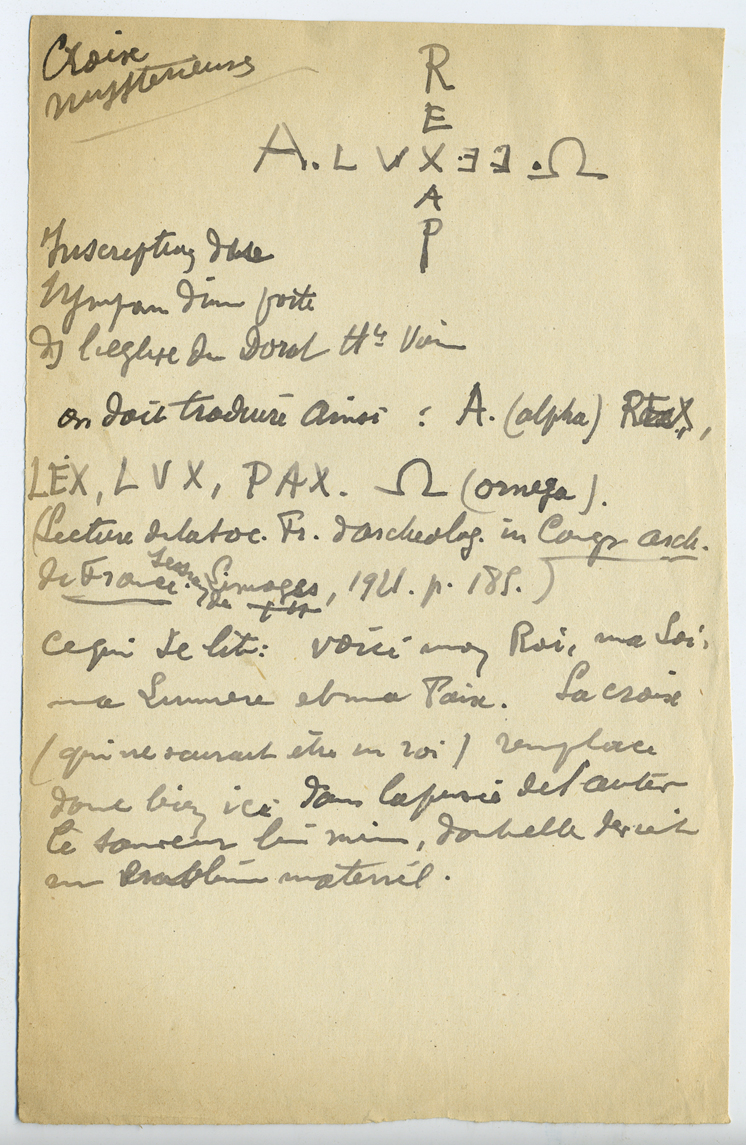 Croix
mystérieuse
R
E
A. L V X Ǝ Ǝ . Ω
A
P
Inscription du
tympan d'une porte
ds l'église du Dorat Hte Vien
on doit traduire ainsi : A. (alpha) REX,
LEX, LVX, PAX. Ω (omega).
(Lecture de la Soc. Fr. d'archeolog. in Congr. arch.
de France. de Limoges, 1921. p. 185.)
ce qui se lit : voici mon Roi, ma Loi,
ma Lumiere et ma Paix. La croix
(qui ne saurait être un roi) remplace
donc bien ici dans la pensée de l'auteur
le sauveur lui mème, dont elle devient
un emblème matériel.